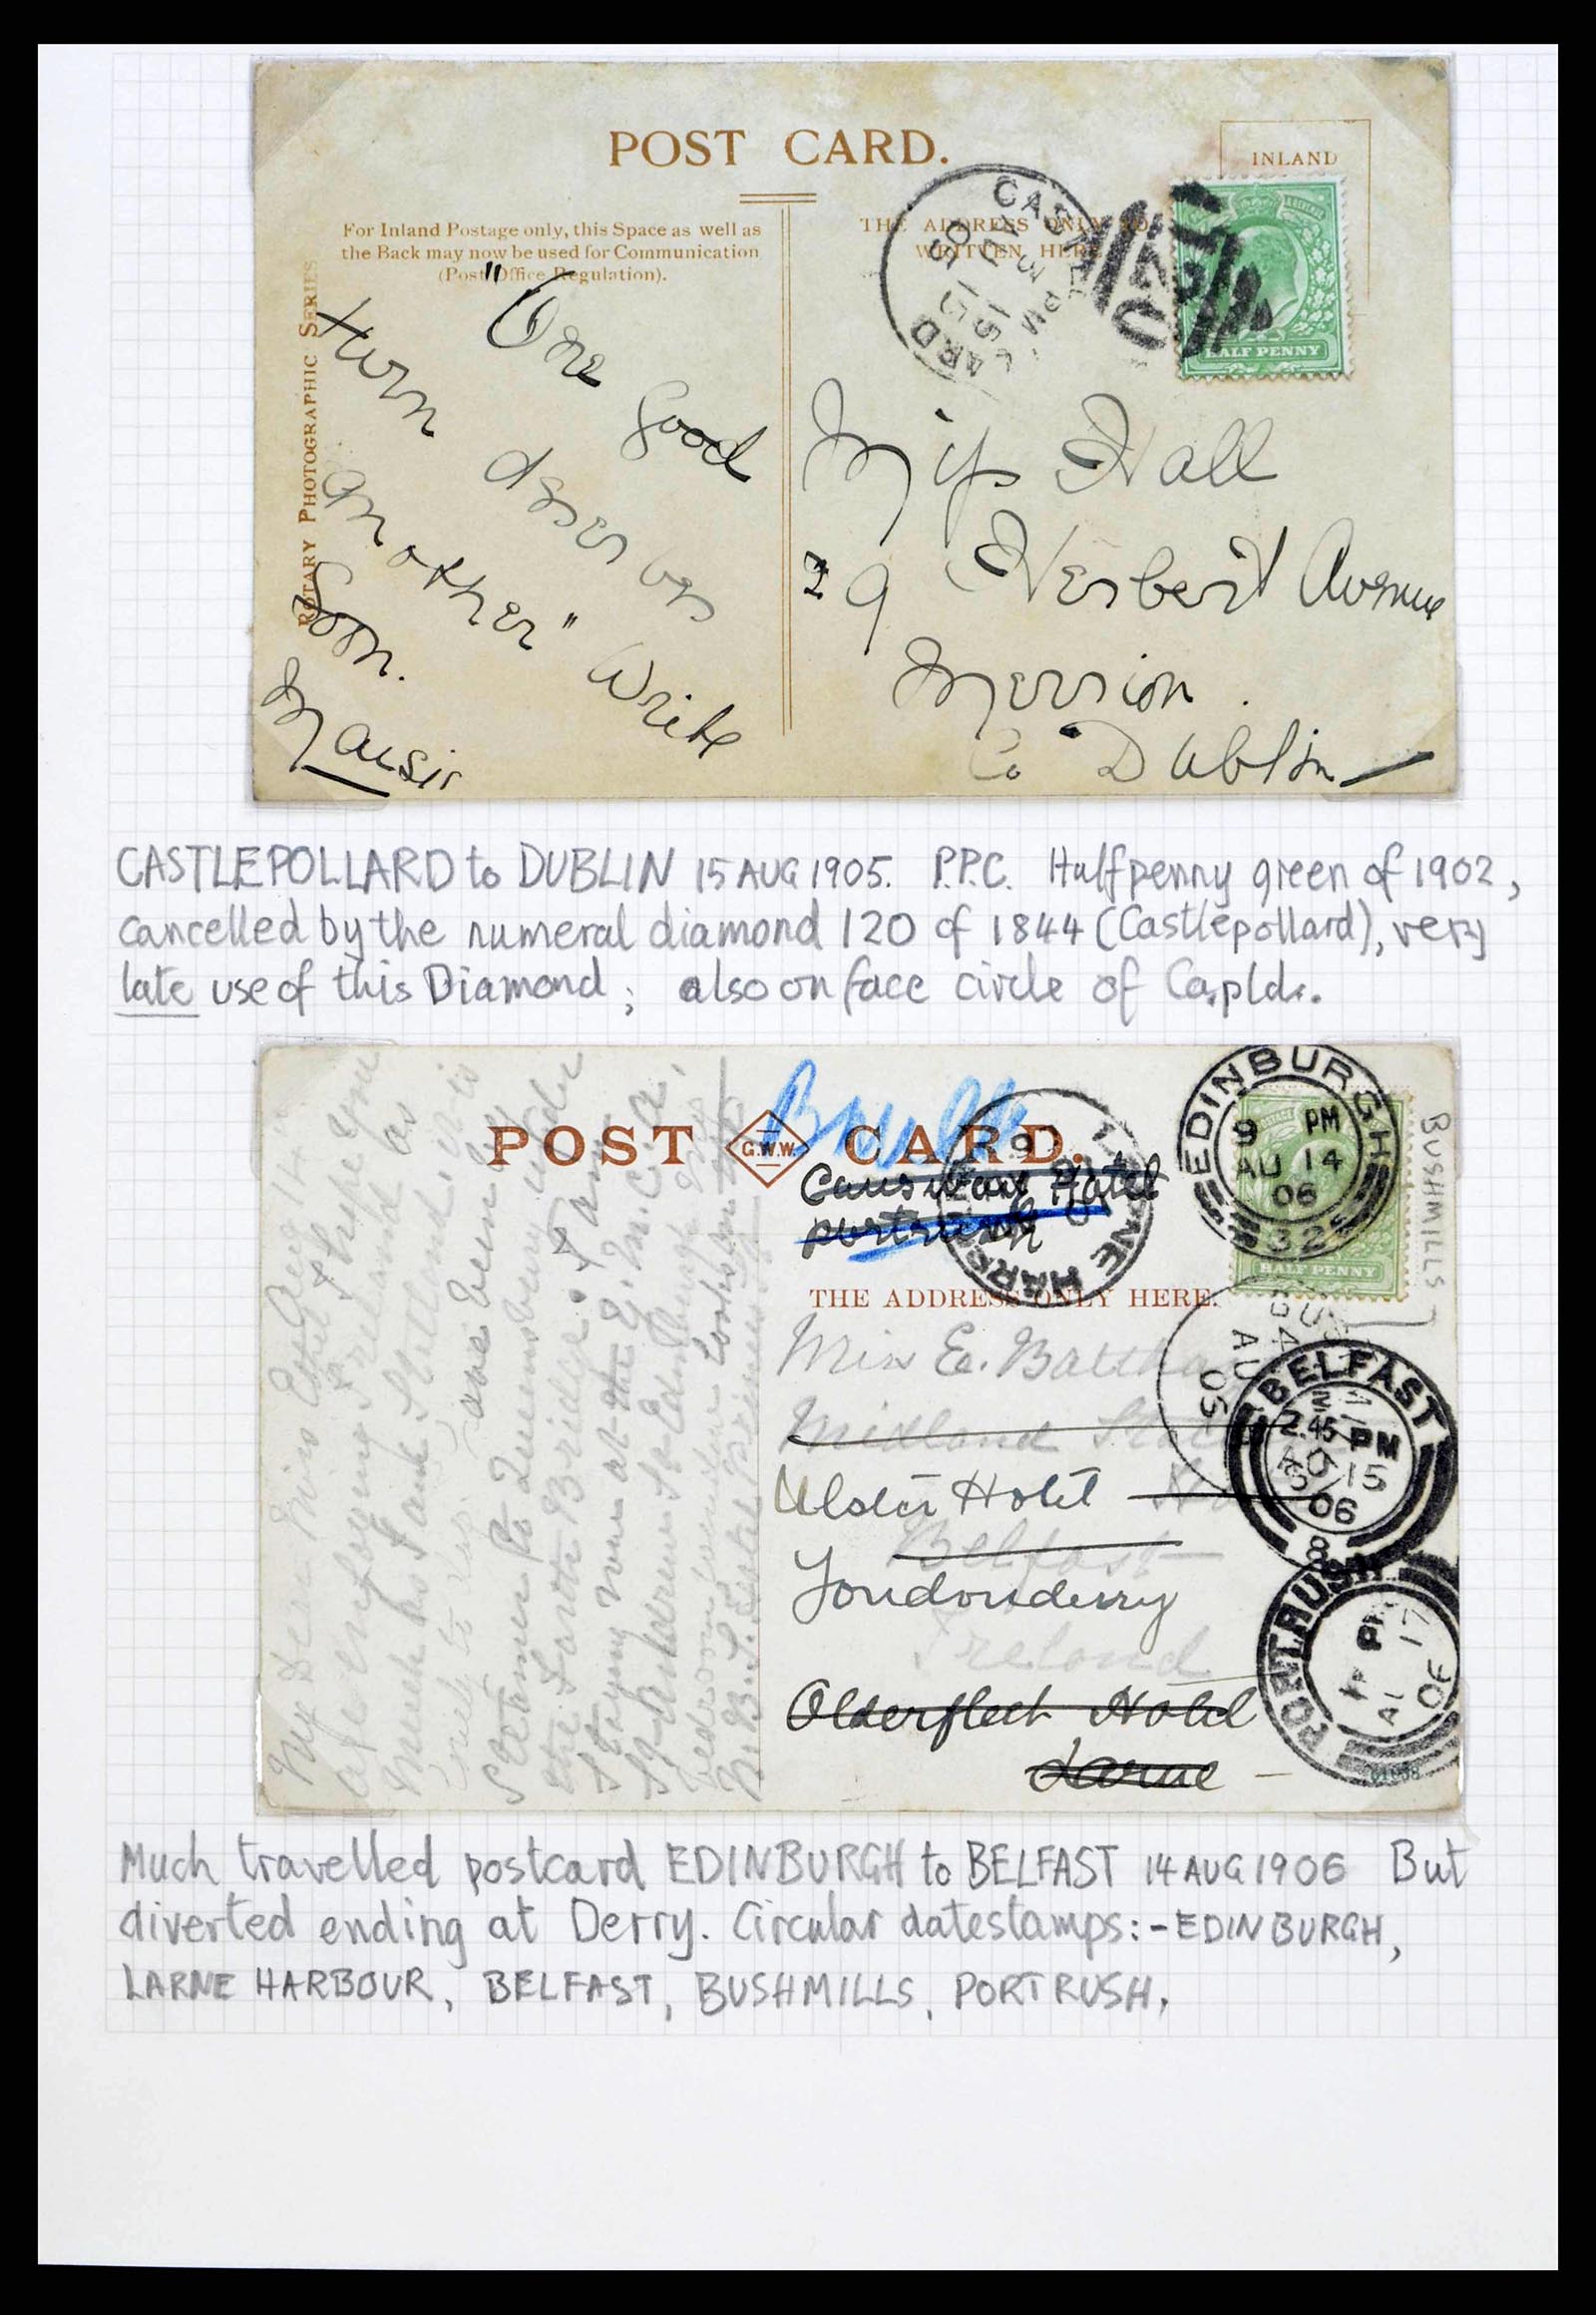 POST CARD.
INLAND
For Inland Postage only, this Space as well as
the Back may now be used for Communication
(Post Office Regulation).
THE ADDRESS ONLY TO
WRITTEN HERE
ROTARY PHOTOGRAPHIC SERIES
CAST
ARD
AU 15
05
120
HALF PENNY
"One good
turn deserves
another" Write
Soon.
Maisie
Miss Hall
29 Herbert Avenue
Merrion.
Co Dublin
CASTLEPOLLARD to DUBLIN 15 AUG 1905. P.P.C. Halfpenny green of 1902,
cancelled by the numeral diamond 120 of 1844 (Castlepollard), very
late use of this Diamond; also on face circle of Ca,pld.
POST G.W.W. CARD.
Causeway Hotel
Portrush
THE ADDRESS ONLY HERE.
LARNE HARB
EDINBURGH
9 PM
AU 14
06
32
HALF PENNY
BUSHMILLS
BUS
AU
06
BELFAST
2.45 PM
AU 15
06
8
PORTRUSH
PM
AU 17
06
Miss E.
Midland
Ulster Hotel
Belfast
Londonderry
Ireland
Olderfleet Hotel
Larne
My Dear Miss
are enjoying Ireland as
much as I am Scotland, it is
one evening
Steamer to Queensbury under
the Forth Bridge. I am
staying now at the Y.M.C.A.
St Andrews St Edinburgh
Much travelled postcard EDINBURGH to BELFAST 14 AUG 1906 But
diverted ending at Derry. Circular datestamps:- EDINBURGH,
LARNE HARBOUR, BELFAST, BUSHMILLS, PORTRUSH.